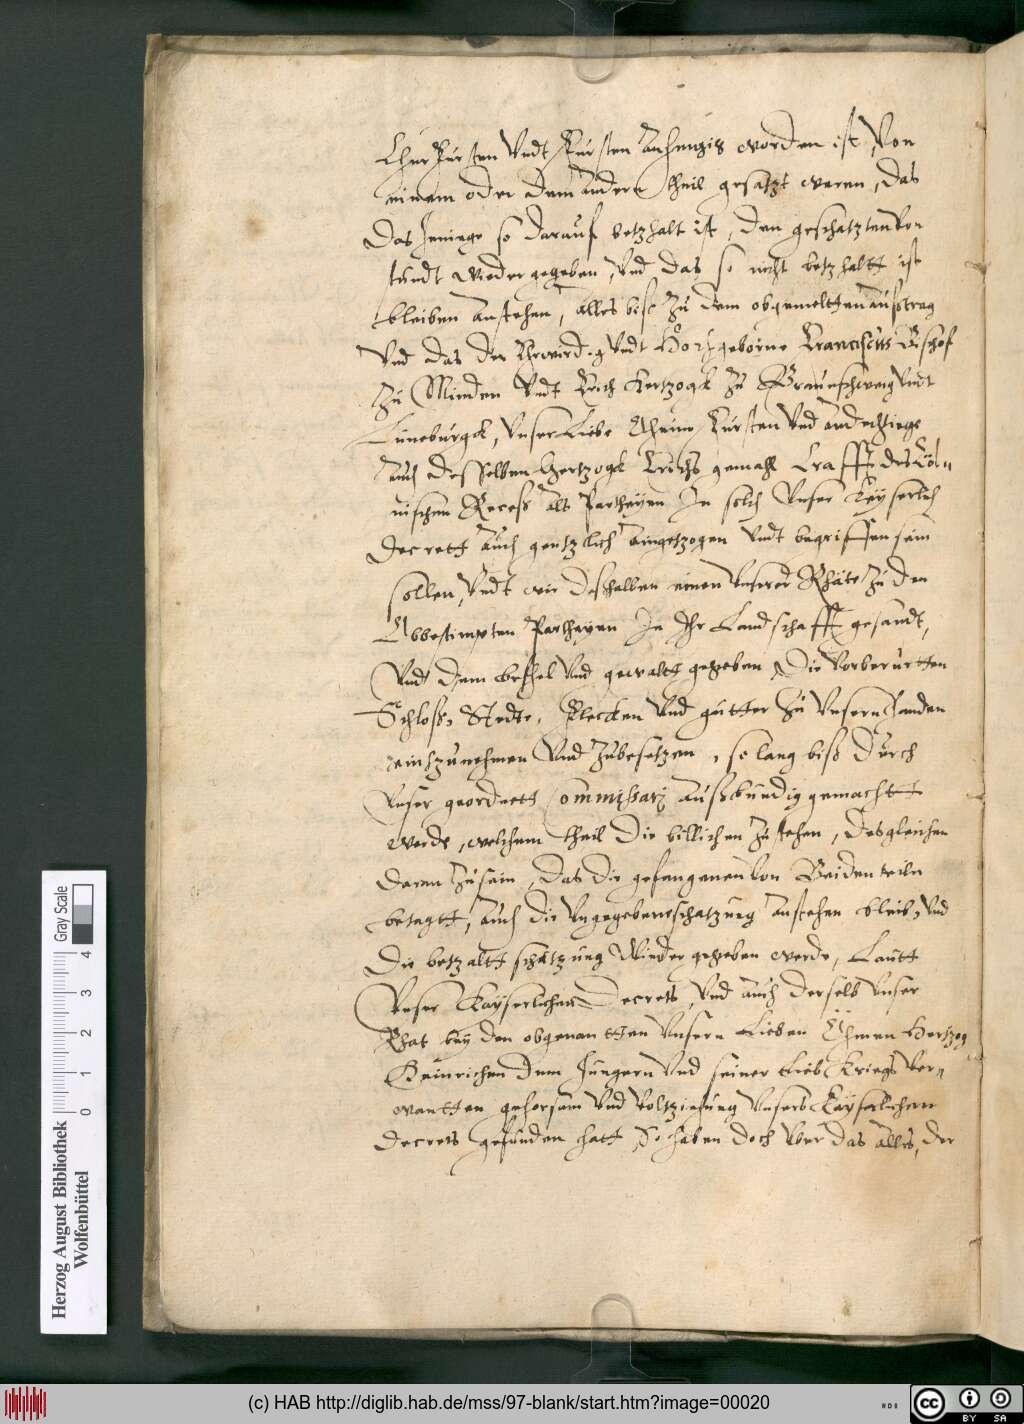 Churfursten Vndt Fursten anhengig worden ist, Von
einem oder dem andern theil gesatzt weren, das
das Jeninge so darauf betzhalt ist, den geschatzten von
stundt wieder gegeben, Vnd das so nicht betzhaltt ist
bleiben anstehen, alles biß zu dem obgemeltten außtrag
Vnd das der Ehrwirdig Vndt Hochgeborne Franciscus Bischof
zu Minden Vndt Erich Hertzogk zu Braunschweig Vndt
Luneburgk, Vnser Liebe Oheim, Fursten Vnd andechtiege
auch desselben Hertzogk Erichs gemahl Crafft des Cöl-
nischen Receß als Partheyen In solch Vnser Keyserlich
Decrett auch gentzlich eingetzogen Vndt begriffen sein
sollen, Vndt wir deßhalben einen Vnserer Rhäte zu den
Obbestimpten Partheyen In Ihr Landschafft gesandt,
Vnd dem befhel Vnd gewaltt gegeben, Die Vorberurtten
Schloß, Stedte, Flecken Vnd gutter zu Vnsern handen
einzunehmen Vnd zubesetzen, so lang biß durch
Vnser geordnett Commissarj außkundig gemacht
werde, welchem theil die billichen zustehen, desgleichen
daran zusein, das die gefangenen von Beiden teiln
betagtt, auch die Vngegebene schatzung anstehen bleib, Vnd
die betzaltt schatzung Wieder gegeben werde, Lautt
Vnser Kayserlichen Decrets, Vnd auch derselb Vnser
Rhat bey den obgenantten Vnsern Lieben Ohmen Hertzog
Heinrichen dem Jungern Vnd seiner Lieb Kriegs Ver-
wantten gehorsam Vnd Voltziehung Vnsers Kayserlichem
Decrets gefunden hatt, So haben doch Vber das alles, der
Herzog August Bibliothek
Wolfenbüttel
0 1 2 3 4
Gray Scale
(c) HAB http://diglib.hab.de/mss/97-blank/start.htm?image=00020
cc BY SA